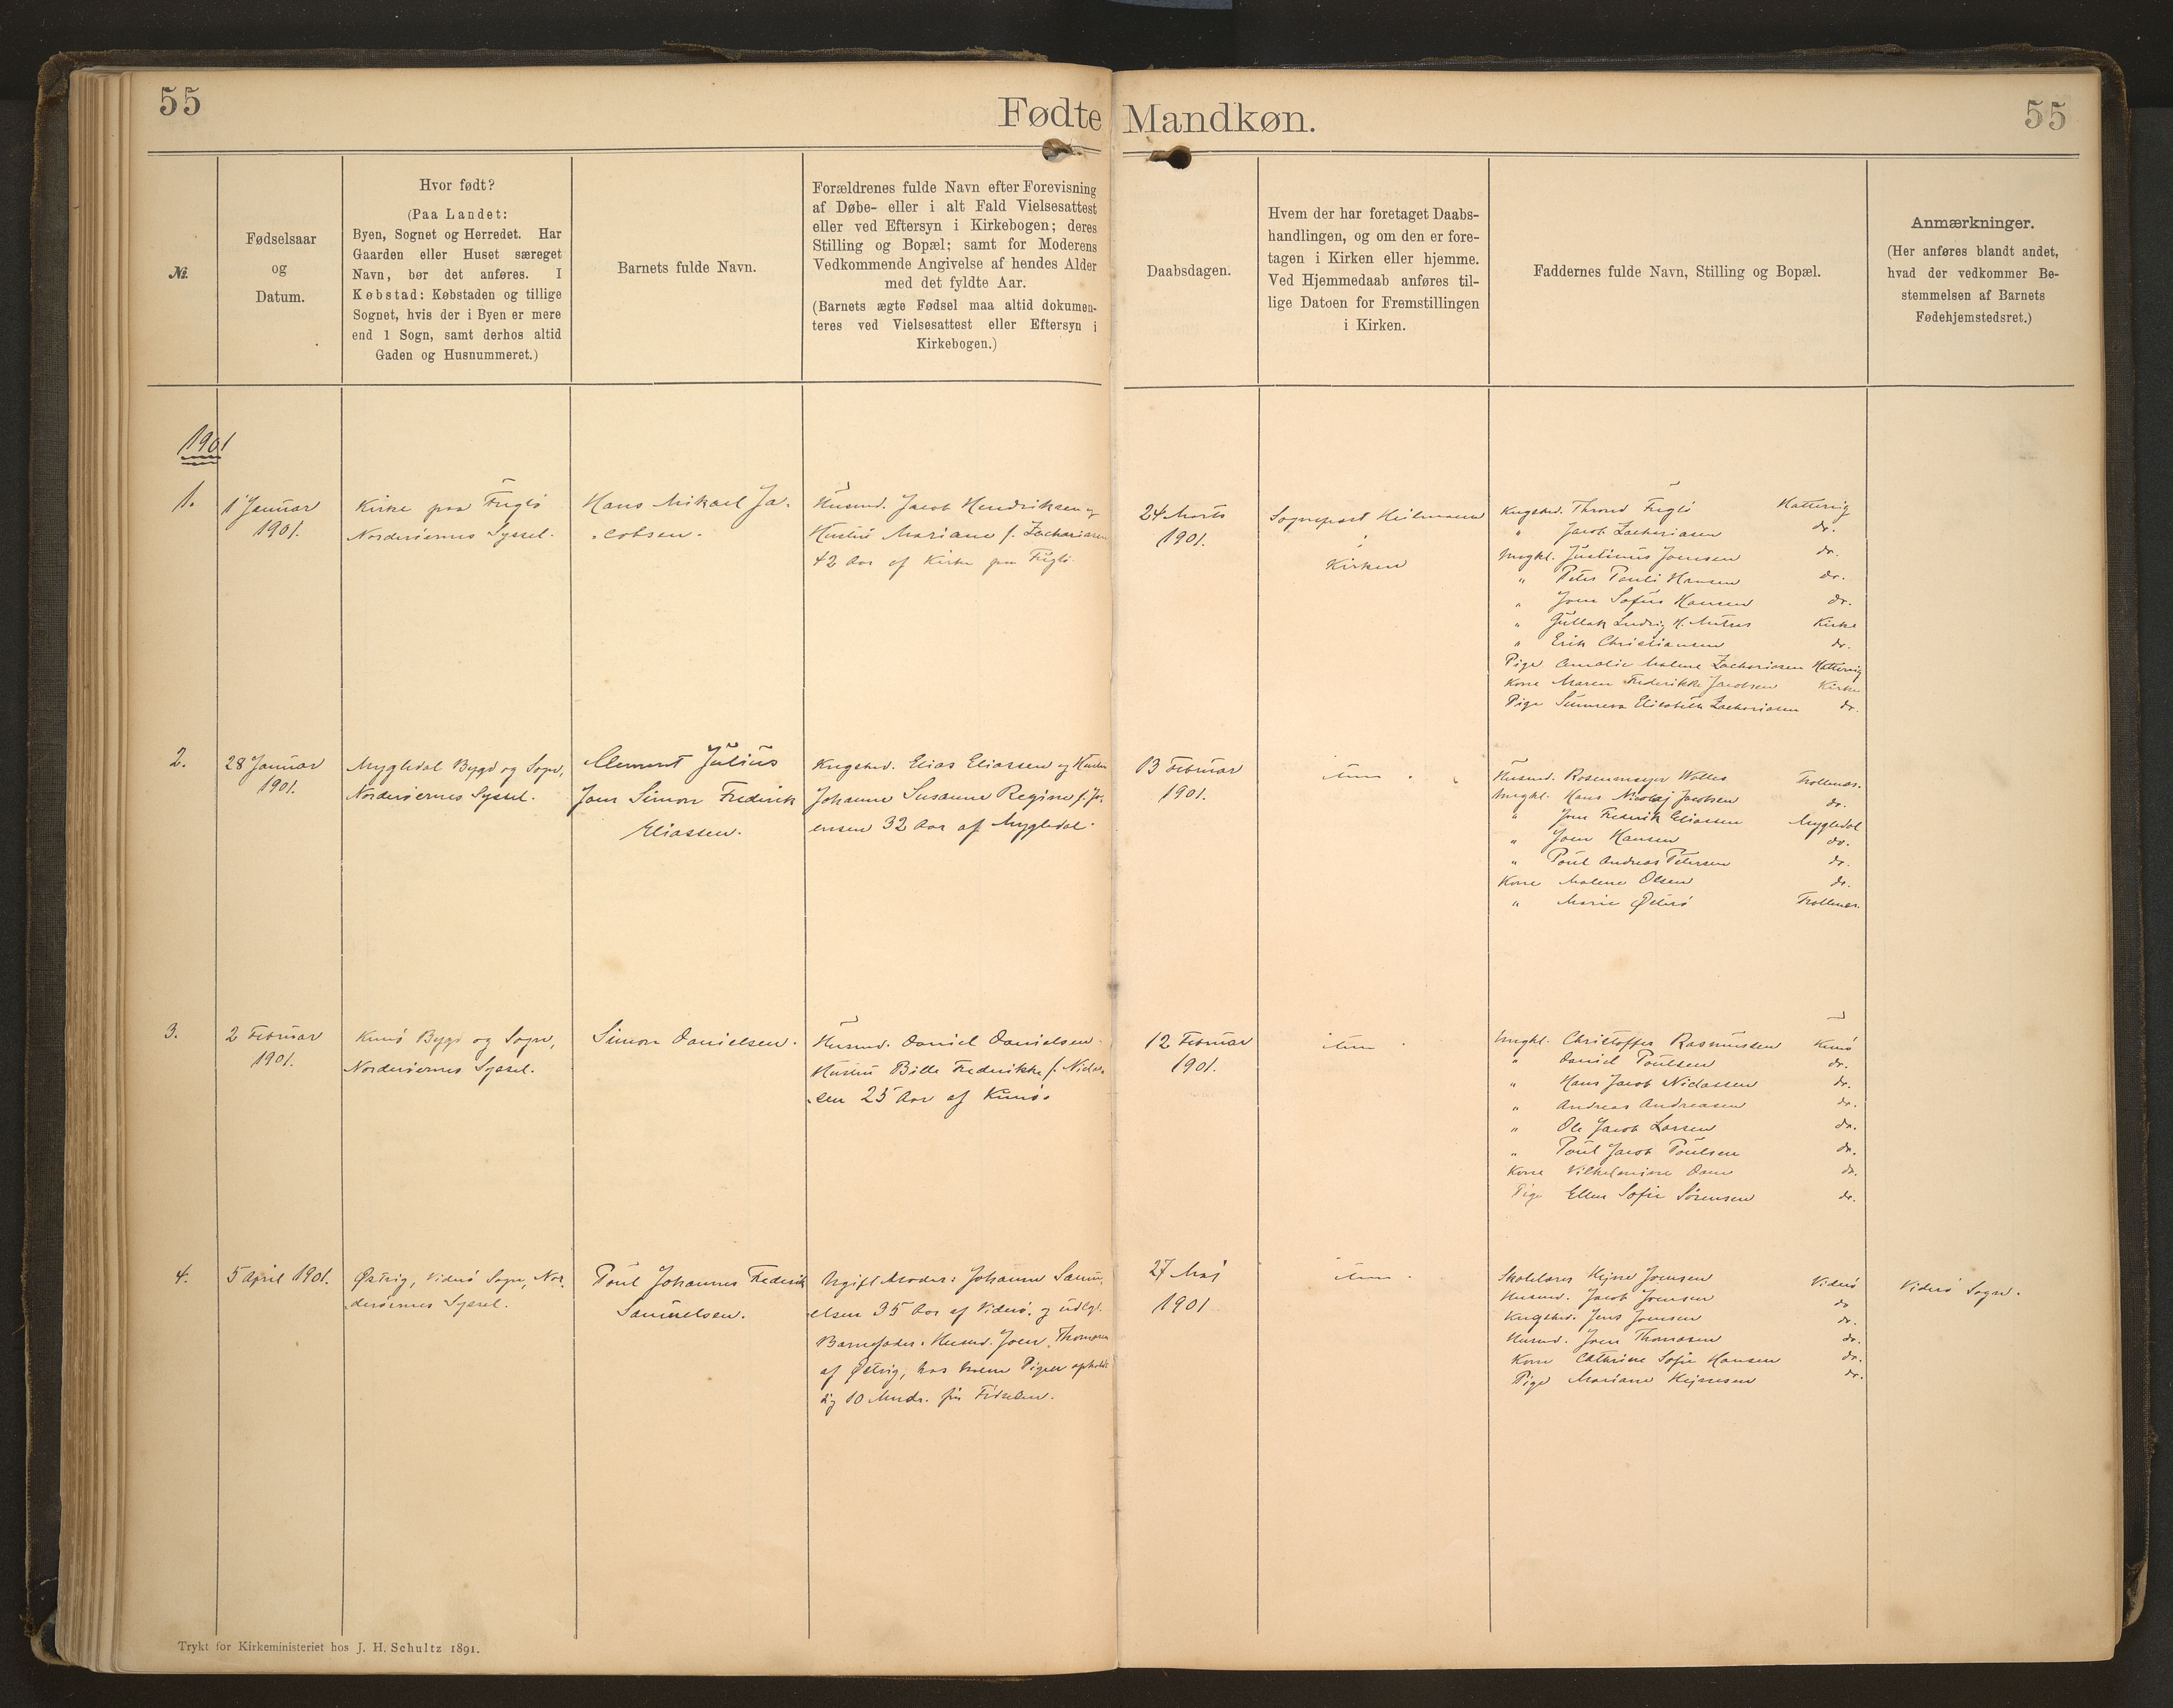 55
Fødte Mandkøn.
55
№
Fødselsaar
og
Datum.
Hvor født?
(Paa Landet:
Byen, Sognet og Herredet. Har
Gaarden eller Huset særeget
Navn, bør det anføres. I
Købstad: Købstaden og tillige
Sognet, hvis der i Byen er mere
end 1 Sogn, samt derhos altid
Gaden og Husnummeret.)
Barnets fulde Navn.
Forældrenes fulde Navn efter Forevisning
af Døbe- eller i alt Fald Vielsesattest
eller ved Eftersyn i Kirkebogen; deres
Stilling og Bopæl; samt for Moderens
Vedkommende Angivelse af hendes Alder
med det fyldte Aar.
(Barnets ægte Fødsel maa altid dokumen-
teres ved Vielsesattest eller Eftersyn i
Kirkebogen.)
Daabsdagen.
Hvem der har foretaget Daabs-
handlingen, og om den er fore-
tagen i Kirken eller hjemme.
Ved Hjemmedaab anføres til-
lige Datoen for Fremstillingen
i Kirken.
Faddernes fulde Navn, Stilling og Bopæl.
Anmærkninger.
(Her anføres blandt andet,
hvad der vedkommer Be-
stemmelsen af Barnets
Fødehjemstedsret.)
1901
1.
1 Januar
1901.
Kirke paa Fuglö
Norderöernes Syssel.
Hans Mikael Ja-
cobsen.
Husmd. Jacob Hendriksen og
Hustru Mariane f. Zachariasen
42 Aar af Kirke paa Fuglö
24 Marts
1901.
Sognepræst Heilmann
i
Kirken
Kngsbd. Thrond Fuglö Hattervig
" Jacob Zachariasen do.
Ungkl. Justinus Joensen do.
" Peter Pauli Hansen do.
" Joen Sofus Hansen do.
" Ludvig H. Kirke
" Erik Christiansen do.
Pige Amalie Malene Zachariasen Hattervig
Kone Maren Frederikke Jacobsen Kirke
Pige Sunneva Elisabeth Zachariasen do.
2.
28 Januar
1901.
Mygledal Bygd og Sogn,
Norderöernes Syssel.
Clement Julius
Joen Simon Frederik
Eliassen.
Kngsbd. Elias Eliassen og Hustru
Johanne Susanne Regine f. Jo-
ensen 32 Aar af Mygledal.
13 Februar
1901.
item
Husmd. Rosenmeyer Trollenæs.
Ungkl. Hans Nicolaj Jacobsen do.
" Joen Frederik Eliassen Mygledal
" Joen Hansen do.
" Poul Andreas Petersen do.
Kone Malene Olsen do.
" Marie Trollenæs.
3.
2 Februar
1901.
Kunö Bygd og Sogn,
Norderöernes Syssel.
Simon Danielsen.
Husmd. Daniel Danielsen
Hustru Bille Frederikke f. Niclas-
sen 25 Aar af Kunö.
12 Februar
1901.
item
Ungkl. Christoffer Rasmussen Kunö
" Daniel Poulsen do.
" Hans Jacob Niclassen do.
" Andreas Andreasen do.
" Ole Jacob Larsen do.
" Poul Jacob Poulsen do.
Kone Vilhelmine Dam do.
Pige Ellen Sofie Sörensen do.
4.
5 April 1901.
Østvig, Viderö Sogn, Nor-
deröernes Syssel.
Poul Johannes Frederik
Samuelsen.
Ugift Moder: Johanne Samu-
elsen 35 Aar af Viderö, og udlgt.
Barnefader: Husmd. Joen Thomasen
af Østvig, hos hvem Pigen opholdt
sig 10 Mndr. för Födselen.
27 Maj
1901
item
Skolelærer Hejne Joensen Viderö
Husmd. Jacob Joensen do
Kngsbd. Jens Joensen do.
Husmd. Joen Thomasen do.
Kone Cathrine Sofie Hansen do.
Pige Mariane Hejnesen do.
Viderö Sogn.
Trykt for Kirkeministeriet hos J. H. Schultz 1891.